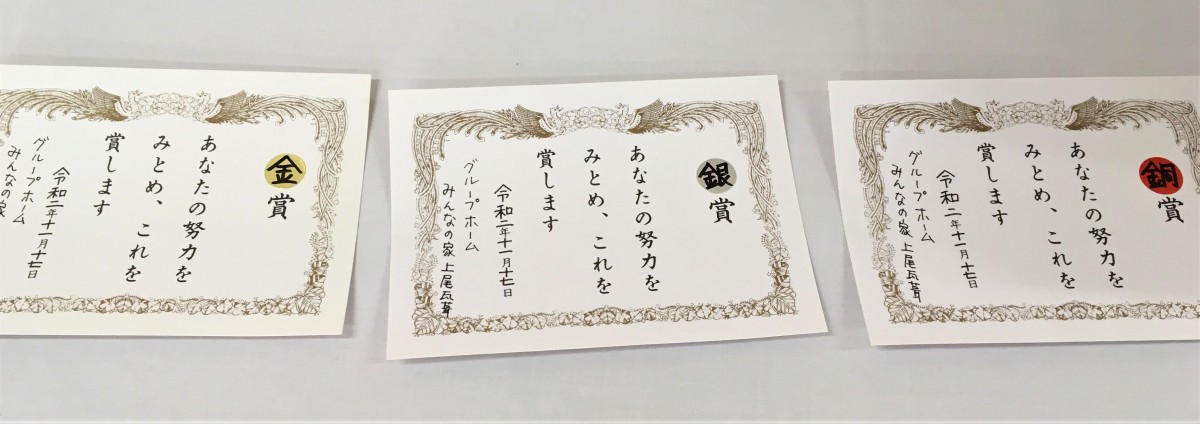 金賞
あなたの努力を
みとめ、これを
賞します
令和二年十一月十七日
グループホーム
みんなの家
銀賞
あなたの努力を
みとめ、これを
賞します
令和二年十一月十七日
グループホーム
みんなの家 上尾瓦葺
銅賞
あなたの努力を
みとめ、これを
賞します
令和二年十一月十七日
グループホーム
みんなの家 上尾瓦葺